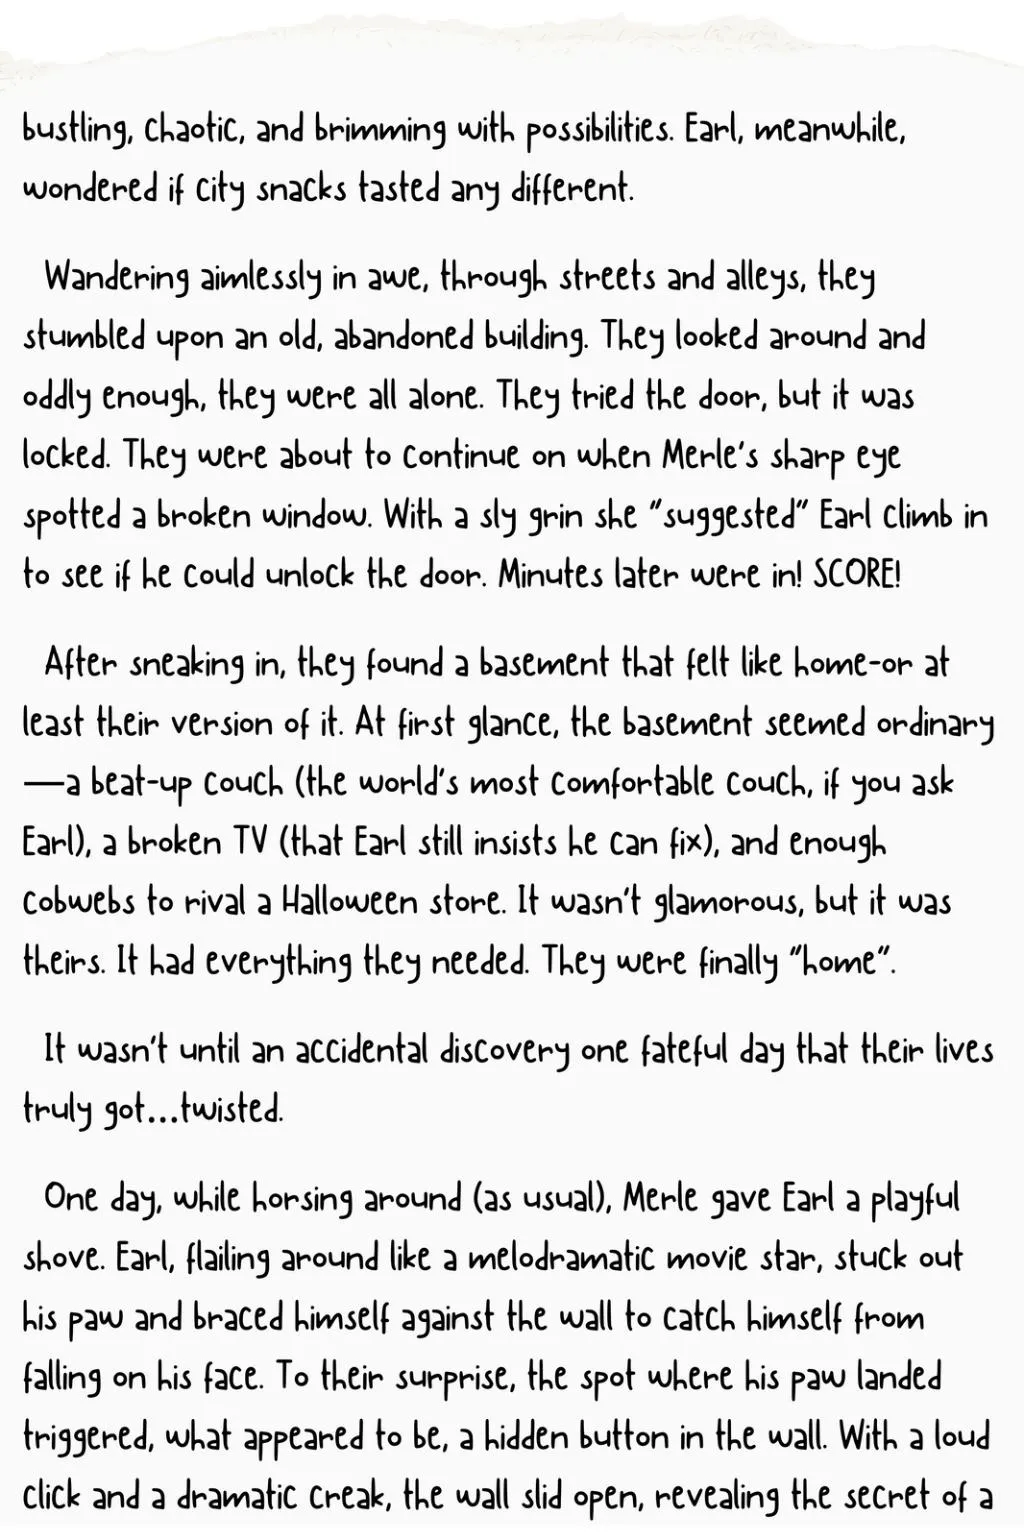 bustling, chaotic, and brimming with possibilities. Earl, meanwhile,
wondered if city snacks tasted any different.
Wandering aimlessly in awe, through streets and alleys, they
stumbled upon an old, abandoned building. They looked around and
oddly enough, they were all alone. They tried the door, but it was
locked. They were about to continue on when Merle's sharp eye
spotted a broken window. With a sly grin she "suggested" Earl climb in
to see if he could unlock the door. Minutes later were in! SCORE!
After sneaking in, they found a basement that felt like home-or at
least their version of it. At first glance, the basement seemed ordinary
—a beat-up couch (the world's most comfortable couch, if you ask
Earl), a broken TV (that Earl still insists he can fix), and enough
cobwebs to rival a Halloween store. It wasn't glamorous, but it was
theirs. It had everything they needed. They were finally "home".
It wasn't until an accidental discovery one fateful day that their lives
truly got...twisted.
One day, while horsing around (as usual), Merle gave Earl a playful
shove. Earl, flailing around like a melodramatic movie star, stuck out
his paw and braced himself against the wall to catch himself from
falling on his face. To their surprise, the spot where his paw landed
triggered, what appeared to be, a hidden button in the wall. With a loud
click and a dramatic creak, the wall slid open, revealing the secret of a